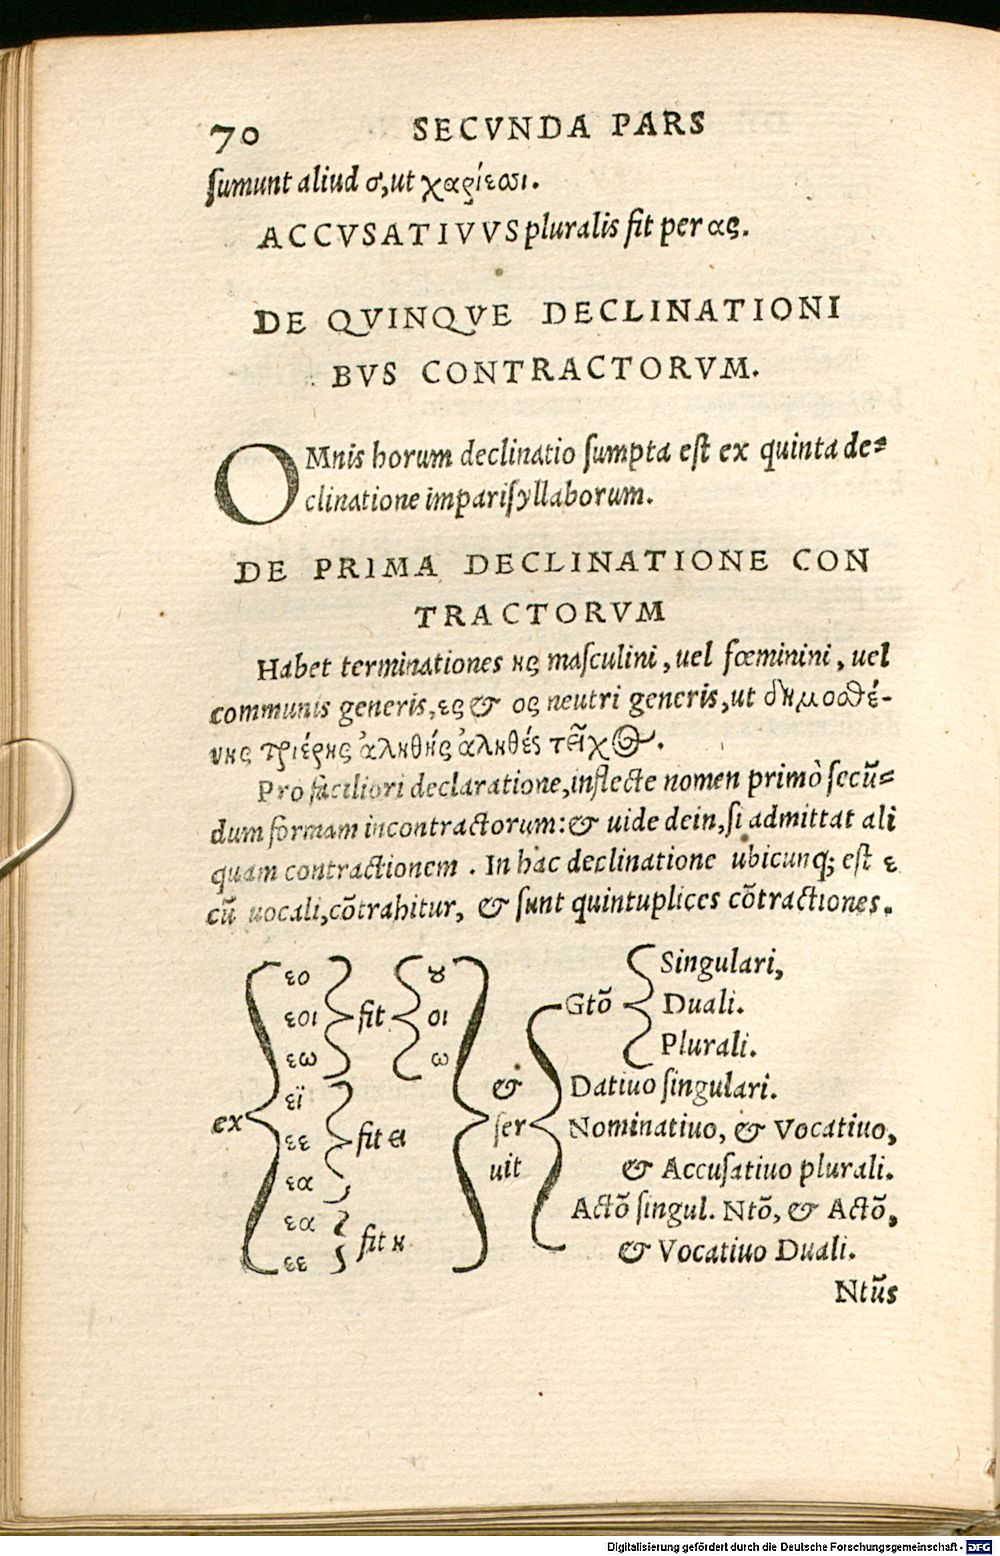 70 SECVNDA PARS
sumunt aliud σ, ut χαρίεσσι.
ACCVSATIVVS pluralis fit per ας.
DE QVINQVE DECLINATIONI
BVS CONTRACTORVM.
OMnis horum declinatio sumpta est ex quinta de=
clinatione imparisyllaborum.
DE PRIMA DECLINATIONE CON
TRACTORVM
Habet terminationes ης masculini, uel fœminini, uel
communis generis, ες & ος neutri generis, ut δημοσθέ-
νης τριέρης ἀληθής ἀληθές τεῖχος.
Pro faciliori declaratione, inflecte nomen primò secũ=
dum formam incontractorum: & uide dein, si admittat ali
quam contractionem. In hac declinatione ubicunq; est ε
cũ uocali, cõtrahitur, & sunt quintuplices cõtractiones.
ex
εο
εοι
εω
εϊ
εε
εα
εα
εε
fit
ȣ
οι
ω
fit ει
fit η
&
ser
uit
Gtõ
Singulari,
Duali.
Plurali.
Datiuo singulari.
Nominatiuo, & Vocatiuo,
& Accusatiuo plurali.
Actõ singul. Ntõ, & Actõ,
& Vocatiuo Duali.
Ntũs
Digitalisierung gefördert durch die Deutsche Forschungsgemeinschaft - DFG